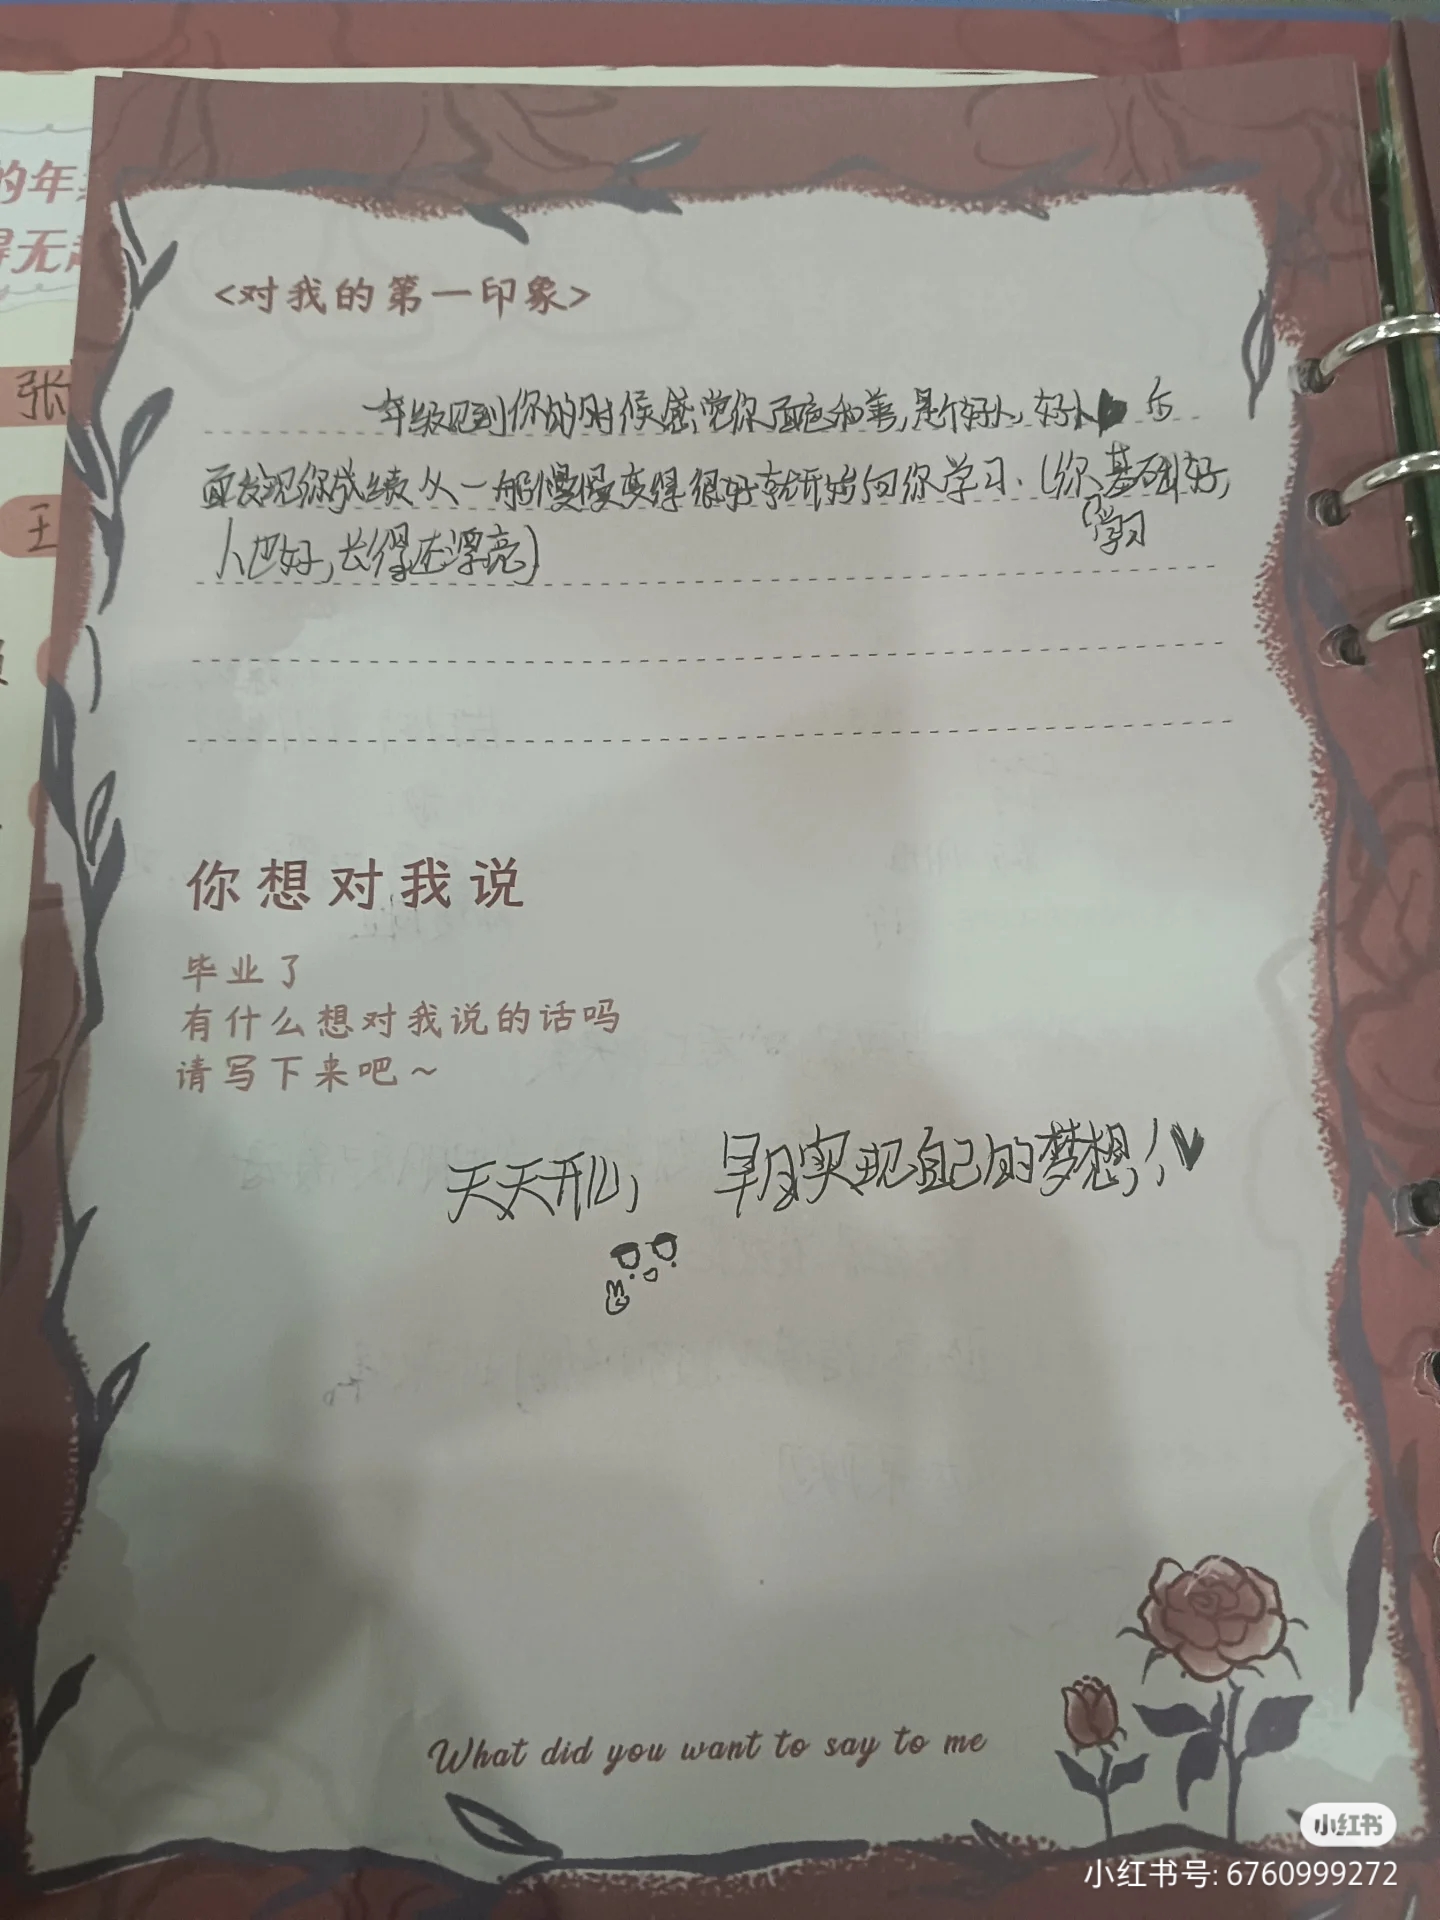 的年
得无
张
王
<对我的第一印象>
一年级见到你的时候感觉你面色和善,是个好人,好人 后
面发现你成绩从一般慢慢变得很好就开始向你学习.(你基础好,
学习
人也好,长得还漂亮)
你想对我说
毕业了
有什么想对我说的话吗
请写下来吧~
天天开心, 早日实现自己的梦想!
What did you want to say to me
小红书
小红书号: 6760999272